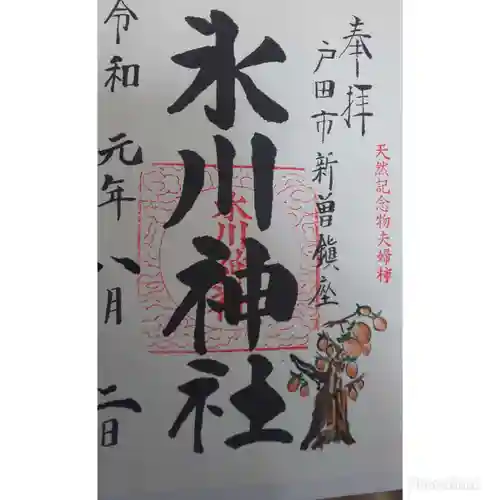 奉拝
天然記念物夫婦柿
戸田市新曽鎮座
氷川神社
氷川神社
令和元年八月二日